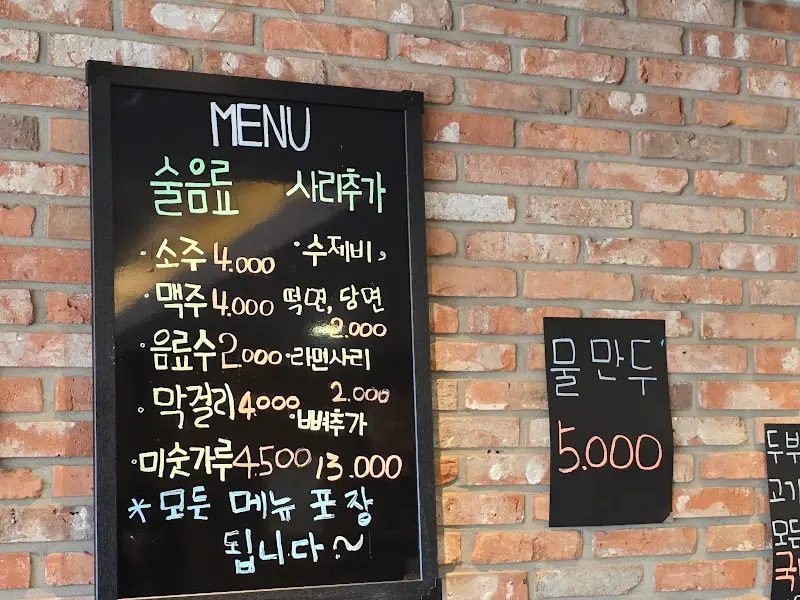 MENU
술음료
사리추가
· 소주 4.000
· 맥주 4.000
· 음료수 2.000
· 막걸리 4.000
· 미숫가루 4500
· 수제비,
떡면, 당면
2.000
· 라면사리
2.000
· 뼈추가
13.000
* 모든 메뉴 포장
됩니다 ~
물만두
5.000
두부
고기
모든